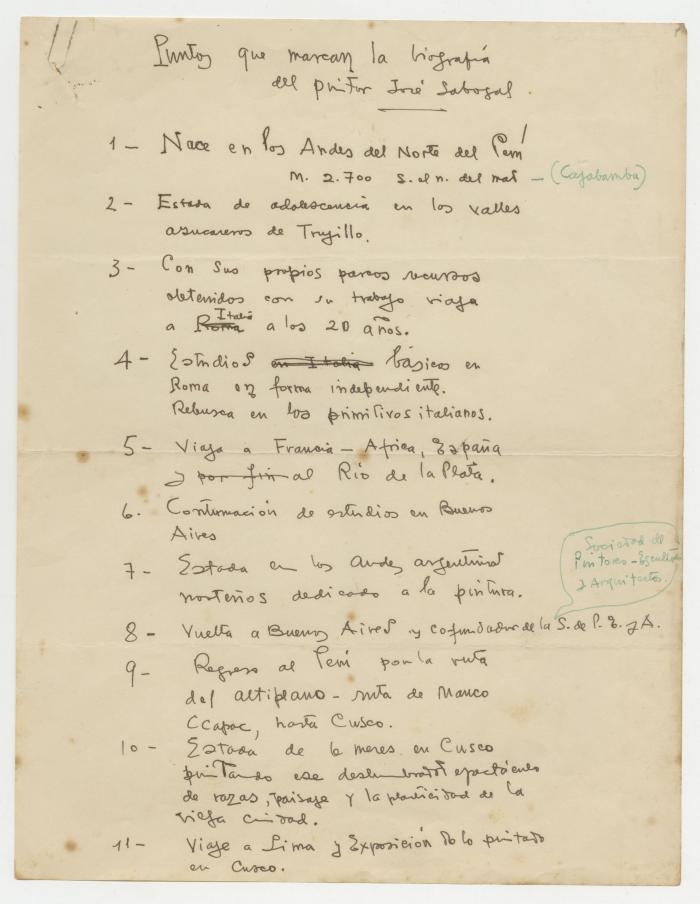 Puntos que marcan la biografía
del pintor José Sabogal.
1 - Nace en los Andes del Norte del Perú
M. 2.700 s. el n. del mar - (Cajabamba)
2 - Estada de adolescencia en los valles
azucareros de Trujillo.
3 - Con sus propios parcos recursos
obtenidos con su trabajo viaja
a Roma Italia a los 20 años.
4 - Estudios en Italia básicos en
Roma en forma independiente.
Rebusca en los primitivos italianos.
5 - Viaja a Francia - Africa, España
y por fin al Río de la Plata.
6. Continuación de estudios en Buenos
Aires
7 - Estada en los Andes argentinos
norteños dedicado a la pintura.
Sociedad de
Pintores - Escultores
y Arquitectos.
8 - Vuelta a Buenos Aires y cofundador de la S. de P. E. y A.
9 - Regreso al Perú por la ruta
del altiplano - ruta de Manco
CCapac, hasta Cusco.
10 - Estada de 6 meses en Cusco
pintando ese deslumbrador espectáculo
de razas, paisaje y la plasticidad de la
vieja ciudad.
11 - Viaje a Lima y Exposición de lo pintado
en Cusco.